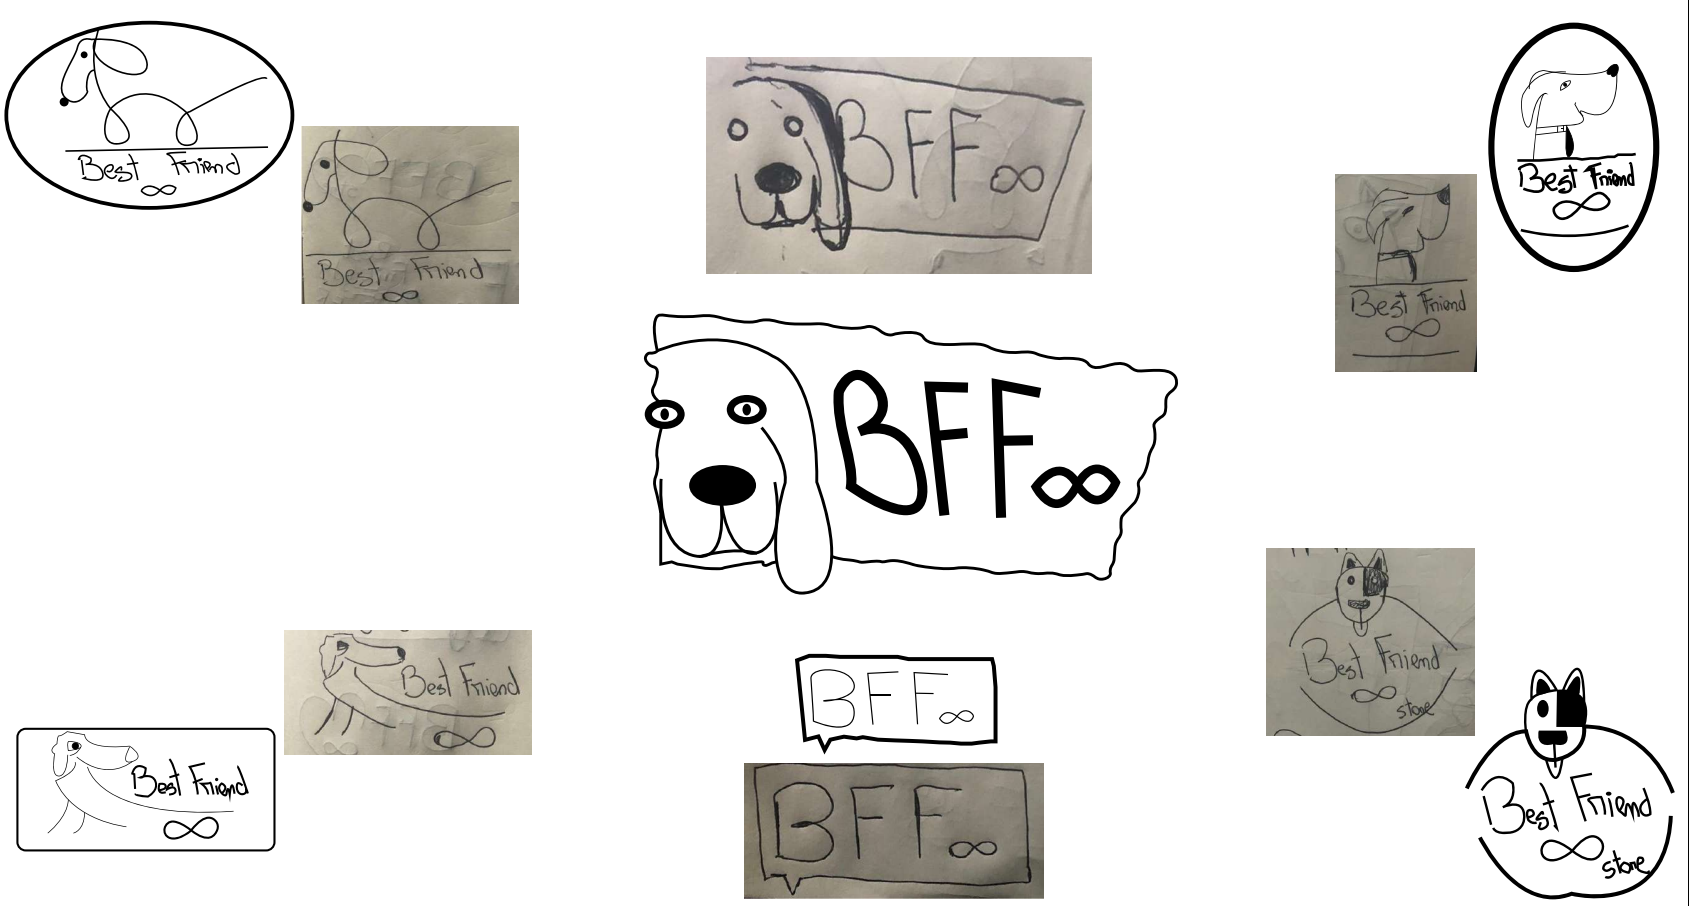 Best Friend
∞
Best Friend
∞
BFF∞
Best Friend
∞
Best Friend
∞
BFF∞
Best Friend
∞
Best Friend
∞
BFF∞
BFF∞
Best Friend
∞
store
Best Friend
∞
store